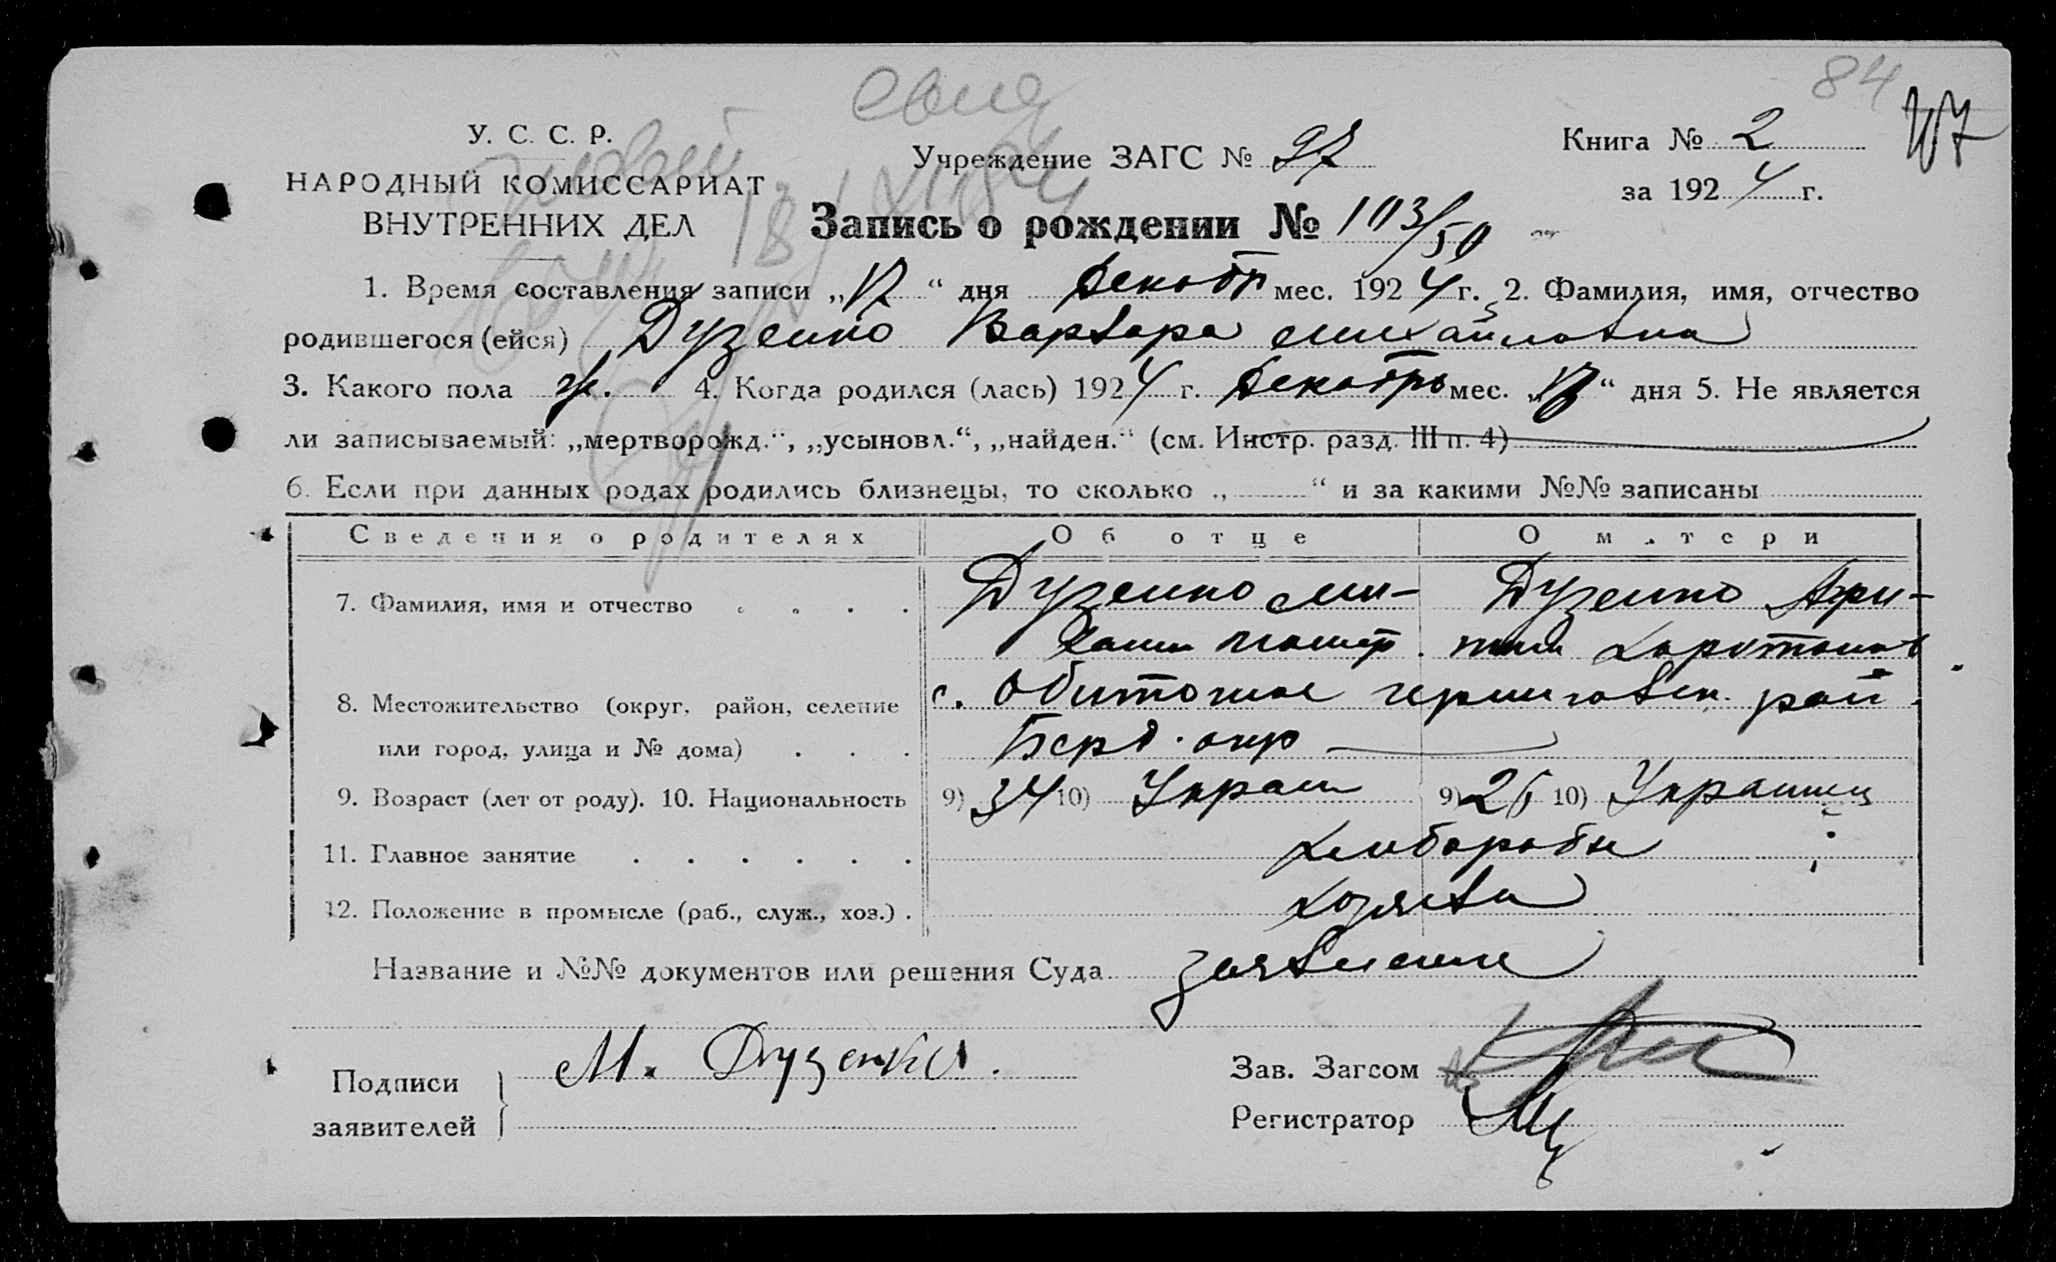 84
У. С. С. Р.
НАРОДНЫЙ КОМИССАРИАТ
ВНУТРЕННИХ ДЕЛ
Учреждение ЗАГС № 97
Книга № 2
за 1924 г.
Запись о рождении № 103/50
1. Время составления записи „17“ дня Декабр мес. 1924 г. 2. Фамилия, имя, отчество
родившегося (ейся) Дузенко Варвара Михайловна
3. Какого пола ж. 4. Когда родился (лась) 1924 г. Декабрь мес. „ “ дня 5. Не является
ли записываемый: „мертворожд.“, „усыновл.“, „найден.“ (см. Инстр. разд. III п. 4)
6. Если при данных родах родились близнецы, то сколько „ “ и за какими №№ записаны
Сведения о родителях Об отце О матери
7. Фамилия, имя и отчество Дузенко Ми- Дузенко
8. Местожительство (округ, район, селение с. Обиточное Черниговск. рай.
или город, улица и № дома) Берд. окр
9. Возраст (лет от роду). 10. Национальность 9) 34 10) Украин 9) 10) Украинц
11. Главное занятие хлеборобы
12. Положение в промысле (раб., служ., хоз.) хозяева
Название и №№ документов или решения Суда заявление
Подписи
заявителей
М. Дузенко.
Зав. Загсом
Регистратор